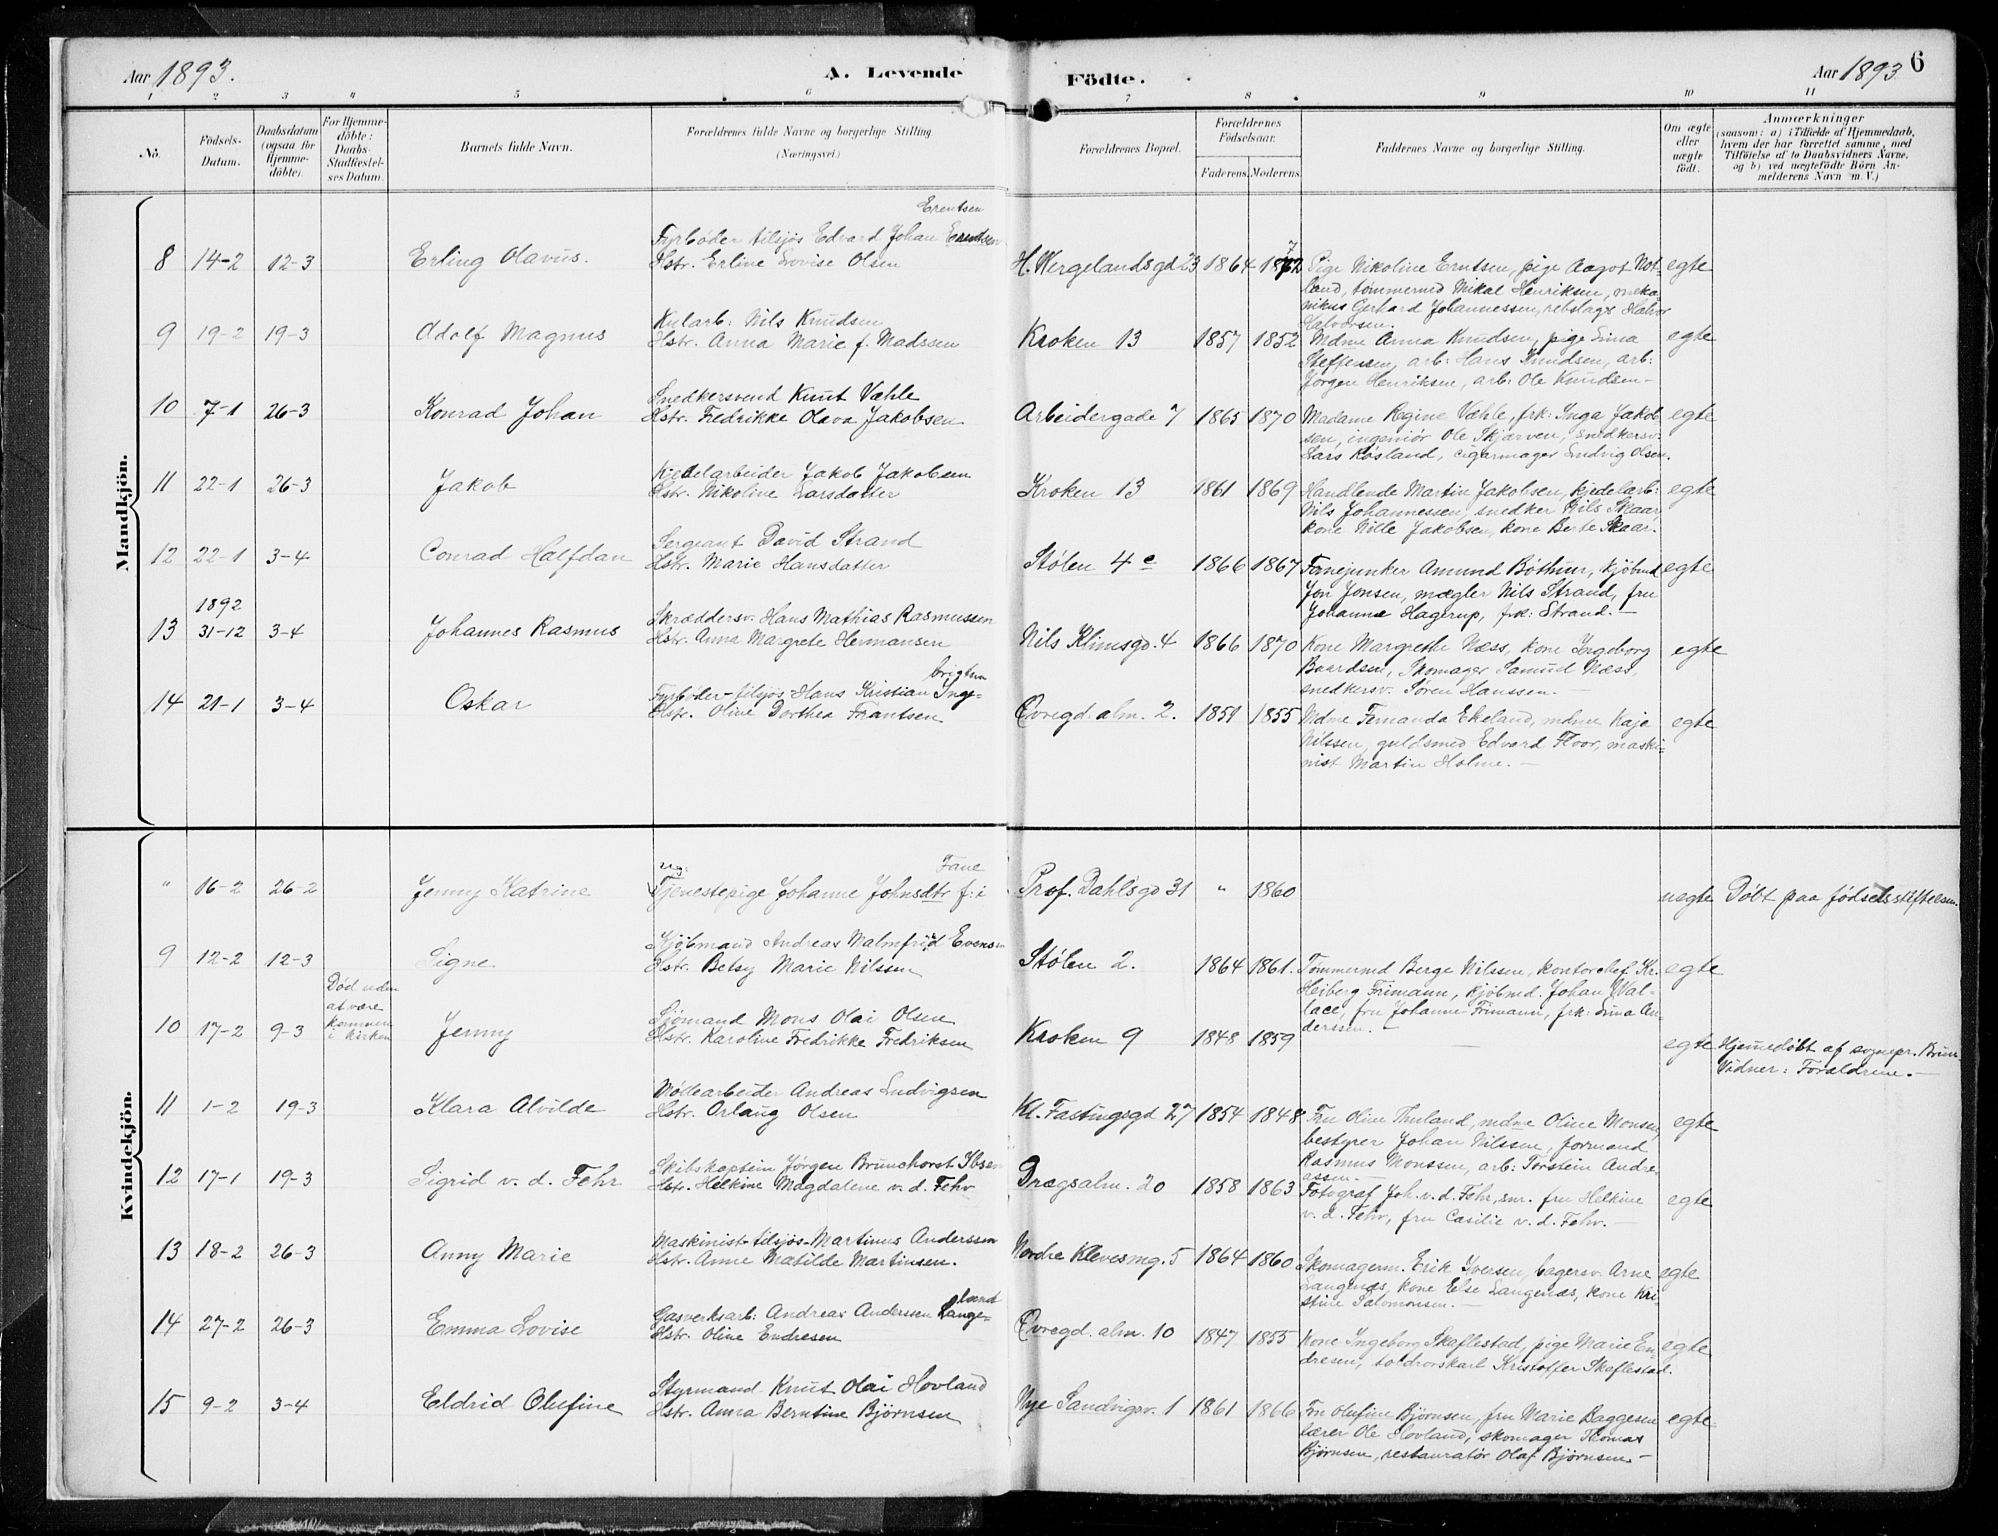 Aar 1893.
A. Levende
Födte.
Aar 1893
6
1 2 3 4 5 6 7 8 9 10 11
No.
Födsels-Datum.
Daabsdatum (ogsaa for Hjemme-döbte).
For Hjemme-döbte: Daabs-Stadfæstel-ses Datum.
Barnets fulde Navn.
Forældrenes fulde Navne og borgerlige Stilling.
(Næringsvei)
Forældrenes Bopæl.
Forældrenes Födselsaar.
Faderens. Moderens.
Faddernes Navne og borgerlige Stilling.
Om ægte eller uægte födt.
Anmærkninger
(saasom: a) i Tilfælde af Hjemmedaab,
hvem der har forrettet samme, med
Tilföielse af to Daabsvidners Navne,
og b) ved uægtefödte Börn An-
melderens Navn m. V.)
Mandkjön.
Erentsen
8 14-2 12-3 Erling Olavus. Fyrbøder tilsjøs Edvard Johan
Hstr. Erline Lovise Olsen H. Wergelandsgd 23 1864 1872 Pige Nikoline Erntsen, pige Aagot Not- egte
land, tømmermd Mikal Henriksen, meka-
nikus Gerhard Johannessen, rebslager Halvor
Halvorsen.
9 19-2 19-3 Adolf Magnus Kularb: Nils Knudsen
Hstr. Anna Marie f. Madssen Kroken 13 1857 1852 Mdme Anna Knudsen, pige Lina egte
Steffensen, arb: Hans Knudsen, arb:
Jørgen Henriksen, arb: Ole Knudsen-
10 7-1 26-3 Konrad Johan Snedkersvend Knut Væhle
Hstr. Fredrikke Olava Jakobsen Arbeidergade 7 1865 1870 Madame Regine Væhle, frk: Inga Jakob- egte
sen, ingeniør Ole Skjærven, snedkersv.
Lars Røsland, cigarmager Ludvig Olsen.
11 22-1 26-3 Jakob Kjedelarbeider Jakob Jakobsen
Hstr. Nikoline Larsdatter Kroken 13 1861 1869 Handlende Martin Jakobsen, kjedelarb: egte
Nils Johannessen, snedker Nils Skaar
kone Nille Jakobsen, kone Berte Skaar.
12 22-1 3-4 Conrad Halfdan Sergeant David Strand
Hstr. Marie Hansdatter Stølen 4 c 1866 1867 Fanejunker Amund Bøthun, kjøbmd egte
Jon Jonsen, mægler Nils Strand, fru
Johanne Hagerup, frk: Strand.-
1892
13 31-12 3-4 Johannes Rasmus Skræddersv. Hans Mathias Rasmussen
Hstr. Anna Margrete Hermansen Nils Klimsgd. 4 1866 1870 Kone Margrethe Næss, kone Ingeborg egte
Baardsen, Skomager Samuel Næss,
snedkersv. Søren Hanssen.-
brigtsen
14 21-1 3-4 Oskar Fyrbøder-tilsjøs Hans Kristian Inge-
Hstr. Oline Dorthea Frantsen Øvregd. alm. 2. 1859 1855 Mdme Fernanda Ekeland, mdme Kaja egte
Nilssen, guldsmed Edvard Floor, maski-
nist Martin Holme.-
Kvindekjön.
ug: Fane
" 16-2 26-2 Jenny Katrine Tjenestepige Johanne Johnsdtr f: i Prof. Dahlsgd 31 " 1860 uegte Døbt paa fødselsstiftelsen.
9 12-2 12-3 Signe Kjøbmand Andreas Malmfrid Evensen
Hstr. Betsy Marie Nilssen Stølen 2. 1864 1861. Tømmermd Berge Nilssen, kontorchef Kr. egte
Heiberg Frimann, kjøbmd. Johan Wal-
lace, fru Johanne Frimann, frk: Lina An-
derssen.-
Død uden
at være
kommen
i kirken
10 17-2 9-3 Jenny Sjømand Mons Olai Olsen
Hstr. Karoline Fredrikke Fredriksen Kroken 9 1848 1859 - egte Hjemedøbt af sognepr. Brun
Vidner: Forældrene.-
11 1-2 19-3 Klara Alvilde Møllearbeider Andreas Ludvigsen
Hstr. Orlaug Olsen Kl. Fastingsgd 27 1854 1848 Fru Oline Thuland, mdme Oline Monsen, egte
bestyrer Johan Nilssen, formand
Rasmus Monssen, arb: Torstein Andre-
assen.-
12 17-1 19-3 Sigrid v. d. Fehr Skibskaptein Jørgen Brunchorst Ibsen
Hstr. Helkine Magdalene v. d. Fehr Dragsalm. 20 1858 1863 Fotograf Joh. v. d. Fehr, snr. fru Helkine egte
v. d. Fehr, fru Casilie v. d. Fehr.-
13 18-2 26-3 Anny Marie Maskinist-tilsjøs-Martinus Anderssen
Hstr. Anne Matilde Martinsen. Nordre Klevesmg. 5 1864 1860 Skomagerm. Erik Iversen, bagersv. Arne egte
Langenæs, kone Else Langenæs, kone Kri-
stine Salomonsen.-
land
14 27-2 26-3 Emma Lovise Gasverksarb: Andreas Anderssen Lange-
Hstr. Oline Endresen Øvregd. alm. 10 1847 1855 Kone Ingeborg Skeflestad, pige Marie En- egte
dresen, toldrorskarl Kristoffer Skeflestad.
15 9-2 3-4 Eldrid Olufine Styrmand Knut Olai Hovland
Hstr. Anna Berntine Bjørnsen Nye Sandvigsv. 1 1861 1866 Fru Olufine Bjørnsen, fru Marie Baggesen egte
lærer Ole Hovland, skomager Thomas
Bjørnsen, restauratør Olaf Bjørnsen.-